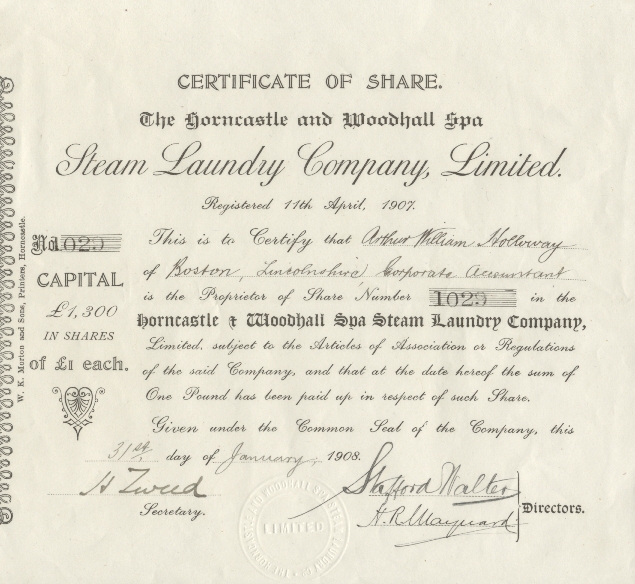 CERTIFICATE OF SHARE.
The Horncastle and Woodhall Spa
Steam Laundry Company, Limited.
Registered 11th April, 1907.
No. 1029
CAPITAL
£1,300
IN SHARES
of £1 each.
W. K. Morton and Sons, Printers, Horncastle.
This is to Certify that Arthur William Holloway
of Boston, Lincolnshire, Corporate Accountant
is the Proprietor of Share Number 1029 in the
Horncastle & Woodhall Spa Steam Laundry Company,
Limited, subject to the Articles of Association or Regulations
of the said Company, and that at the date hereof the sum of
One Pound has been paid up in respect of such Share.
Given under the Common Seal of the Company, this
31st day of January, 1908.
Secretary.
Stafford Walter
Directors.
LIMITED